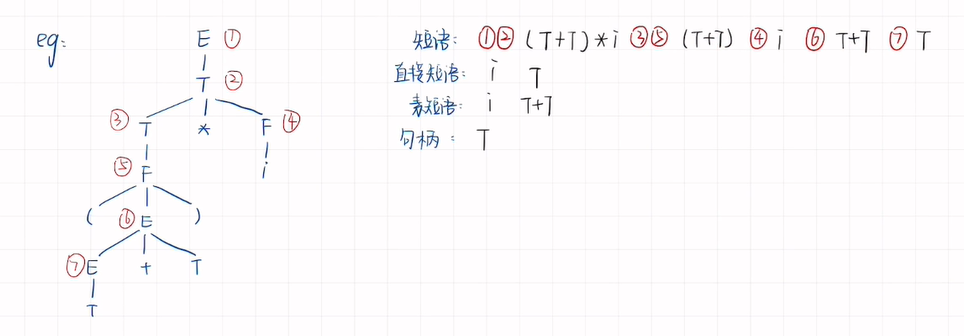 eg:
E ①
T ②
③ T * F ④
⑤ F i
( ⑥ E )
⑦ E + T
T
短语: ①② (T+T)*i ③⑤ (T+T) ④ i ⑥ T+T ⑦ T
直接短语: i T
素短语: i T+T
句柄: T